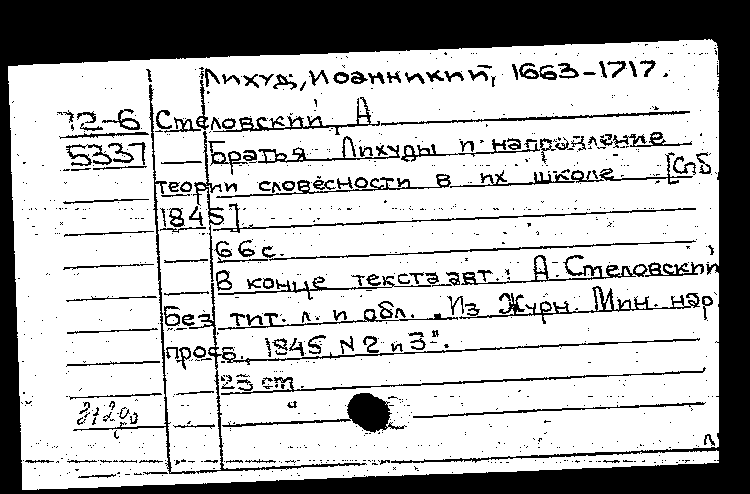 Лихуд, Иоанникий, 1663-1717.
72-6 Стеловский, А.
5337 Братья Лихуды и направление
теории словесности в их школе. [Спб.
1845]
66 с.
В конце текста авт.: А. Стеловский
Без тит. л. и обл. "Из Журн. Мин. нар.
просв., 1845, N 2 и 3".
23 см.